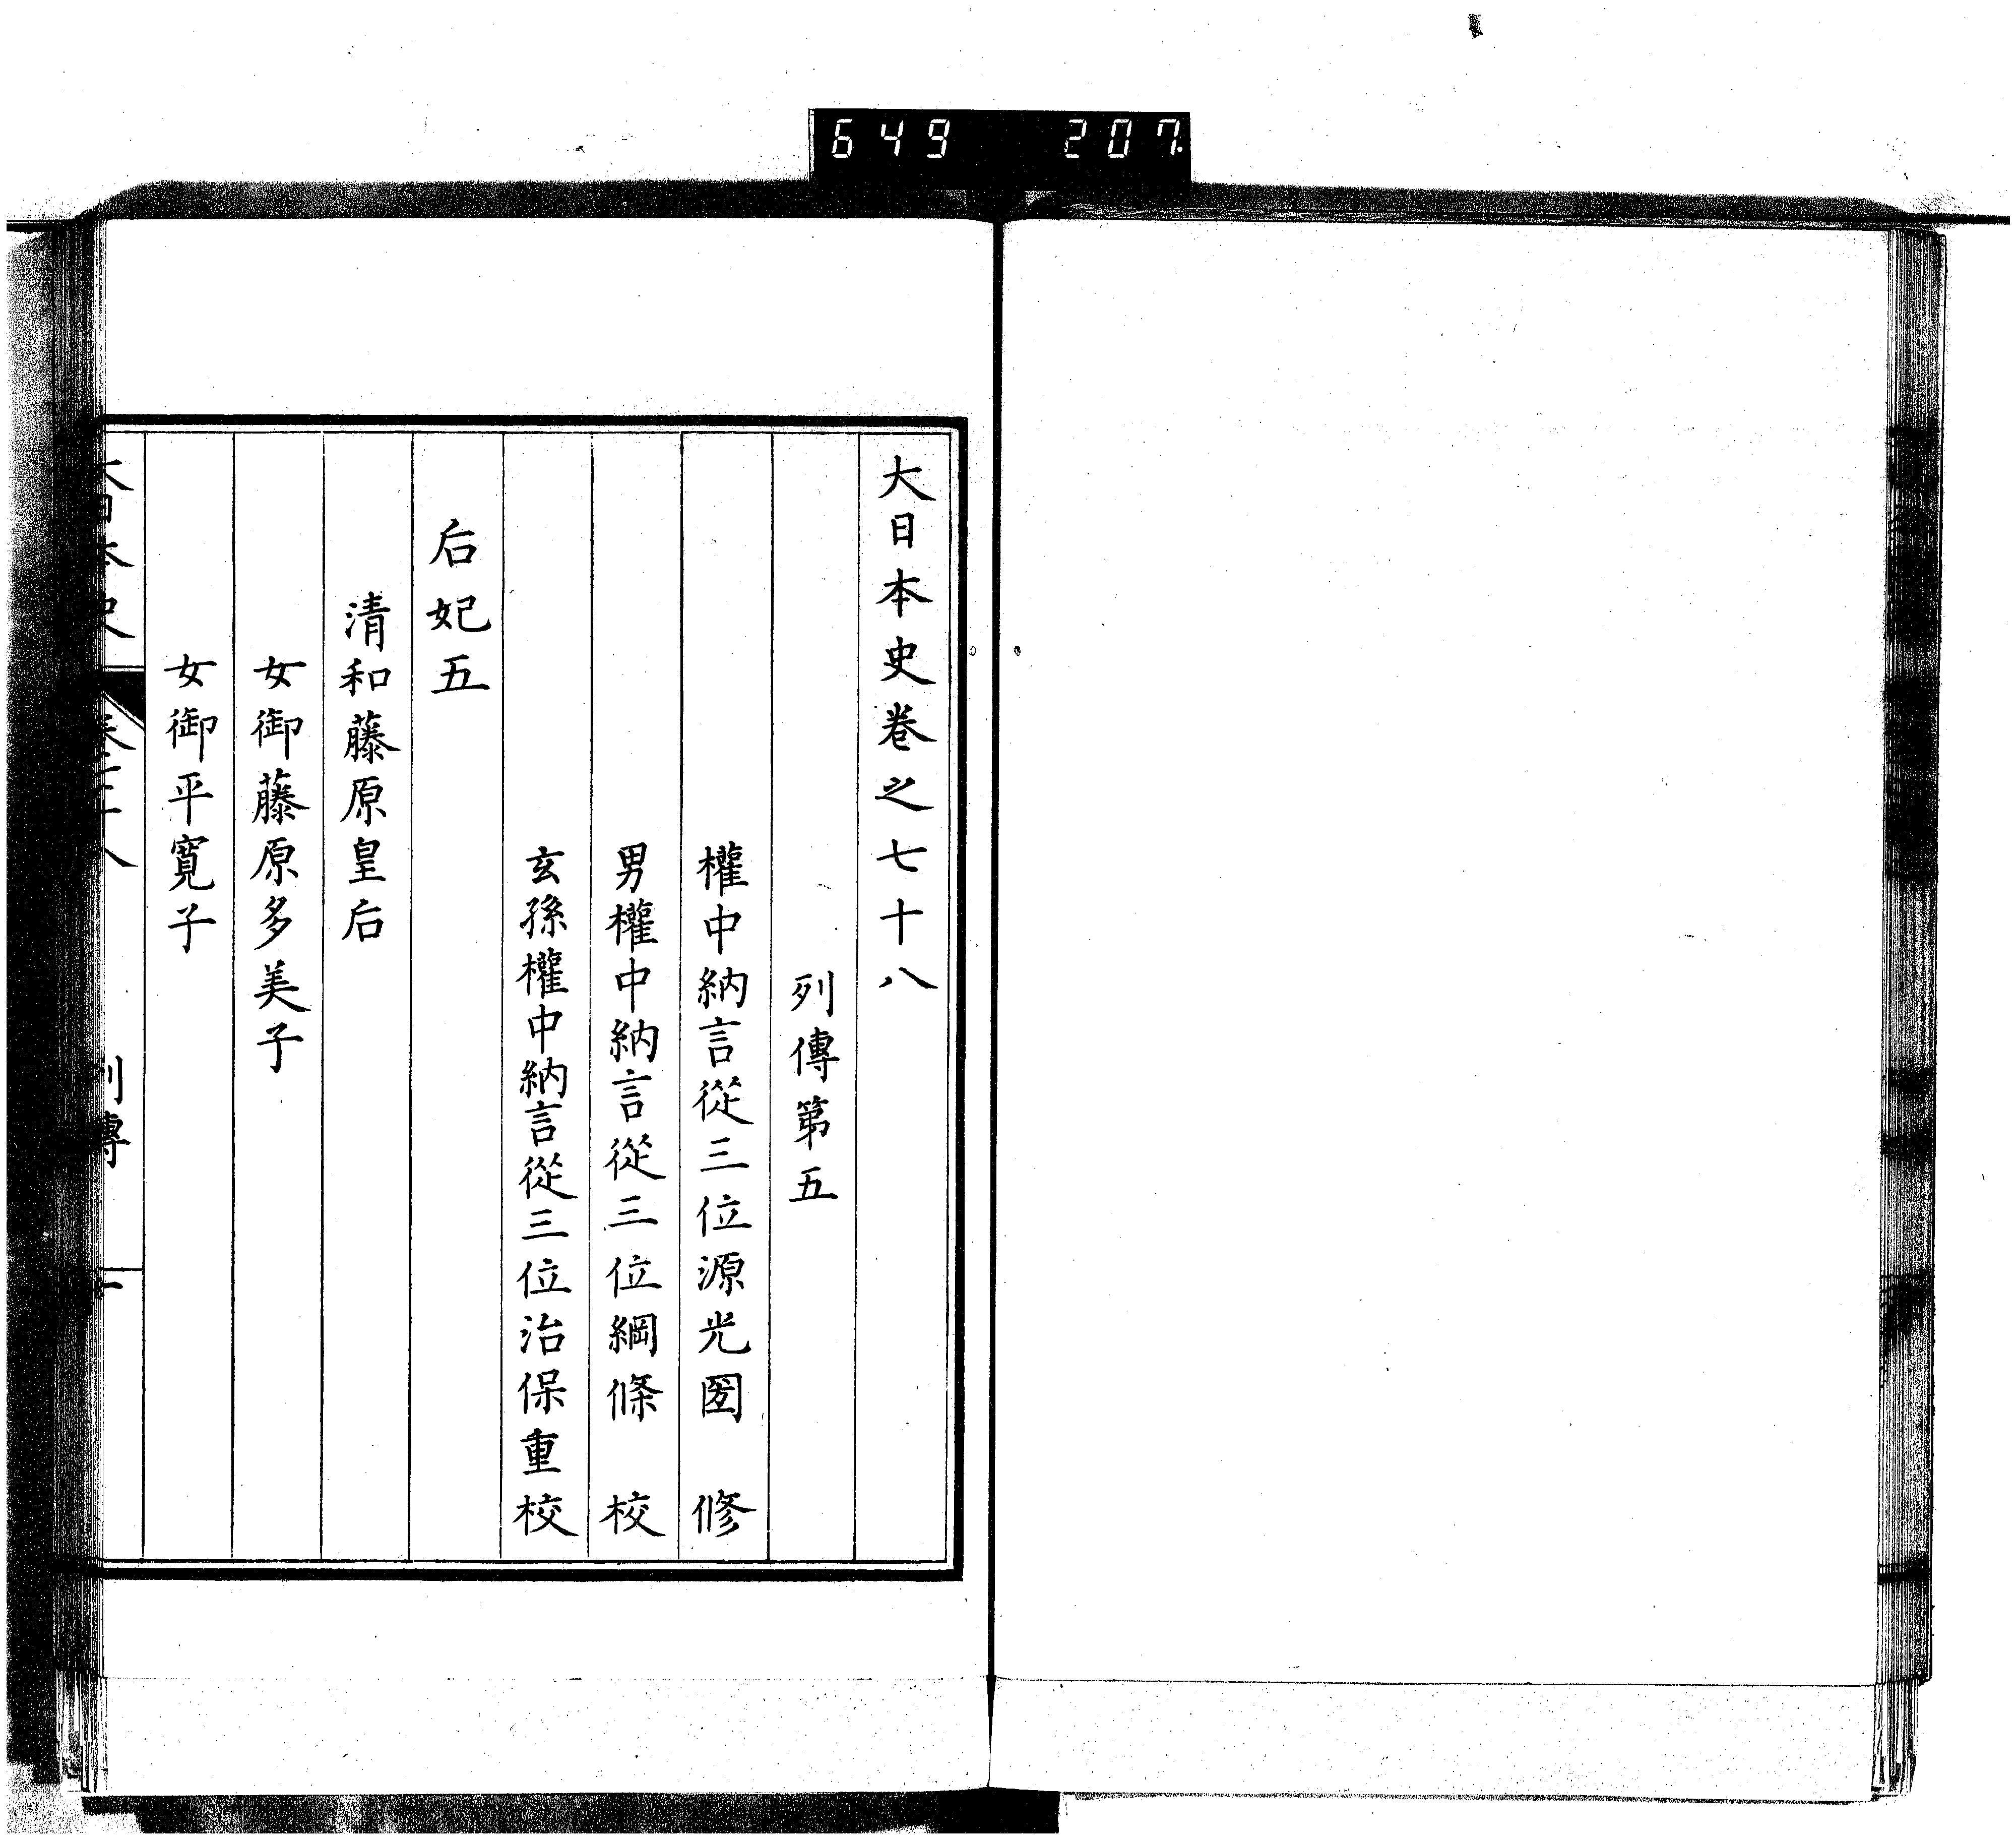 649 207
大日本史卷之七十八
列傳第五
權中納言從三位源光圀 修
男權中納言從三位綱條 校
玄孫權中納言從三位治保重校
后妃五
清和藤原皇后
女御藤原多美子
女御平寬子